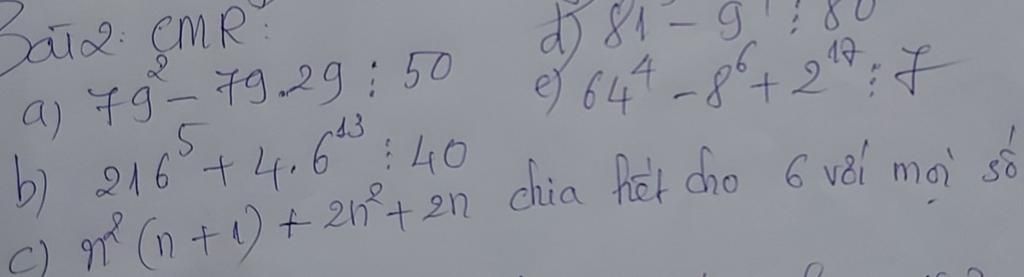 Bài 2: CMR:
a) 79² - 79.29 ⋮ 50
b) 216⁵ + 4.6¹³ ⋮ 40
c) n²(n + 1) + 2n² + 2n chia hết cho 6 với mọi số
d) 81 - 9 ⋮ 80
e) 64⁴ - 8⁶ + 2¹⁷ ⋮ 7